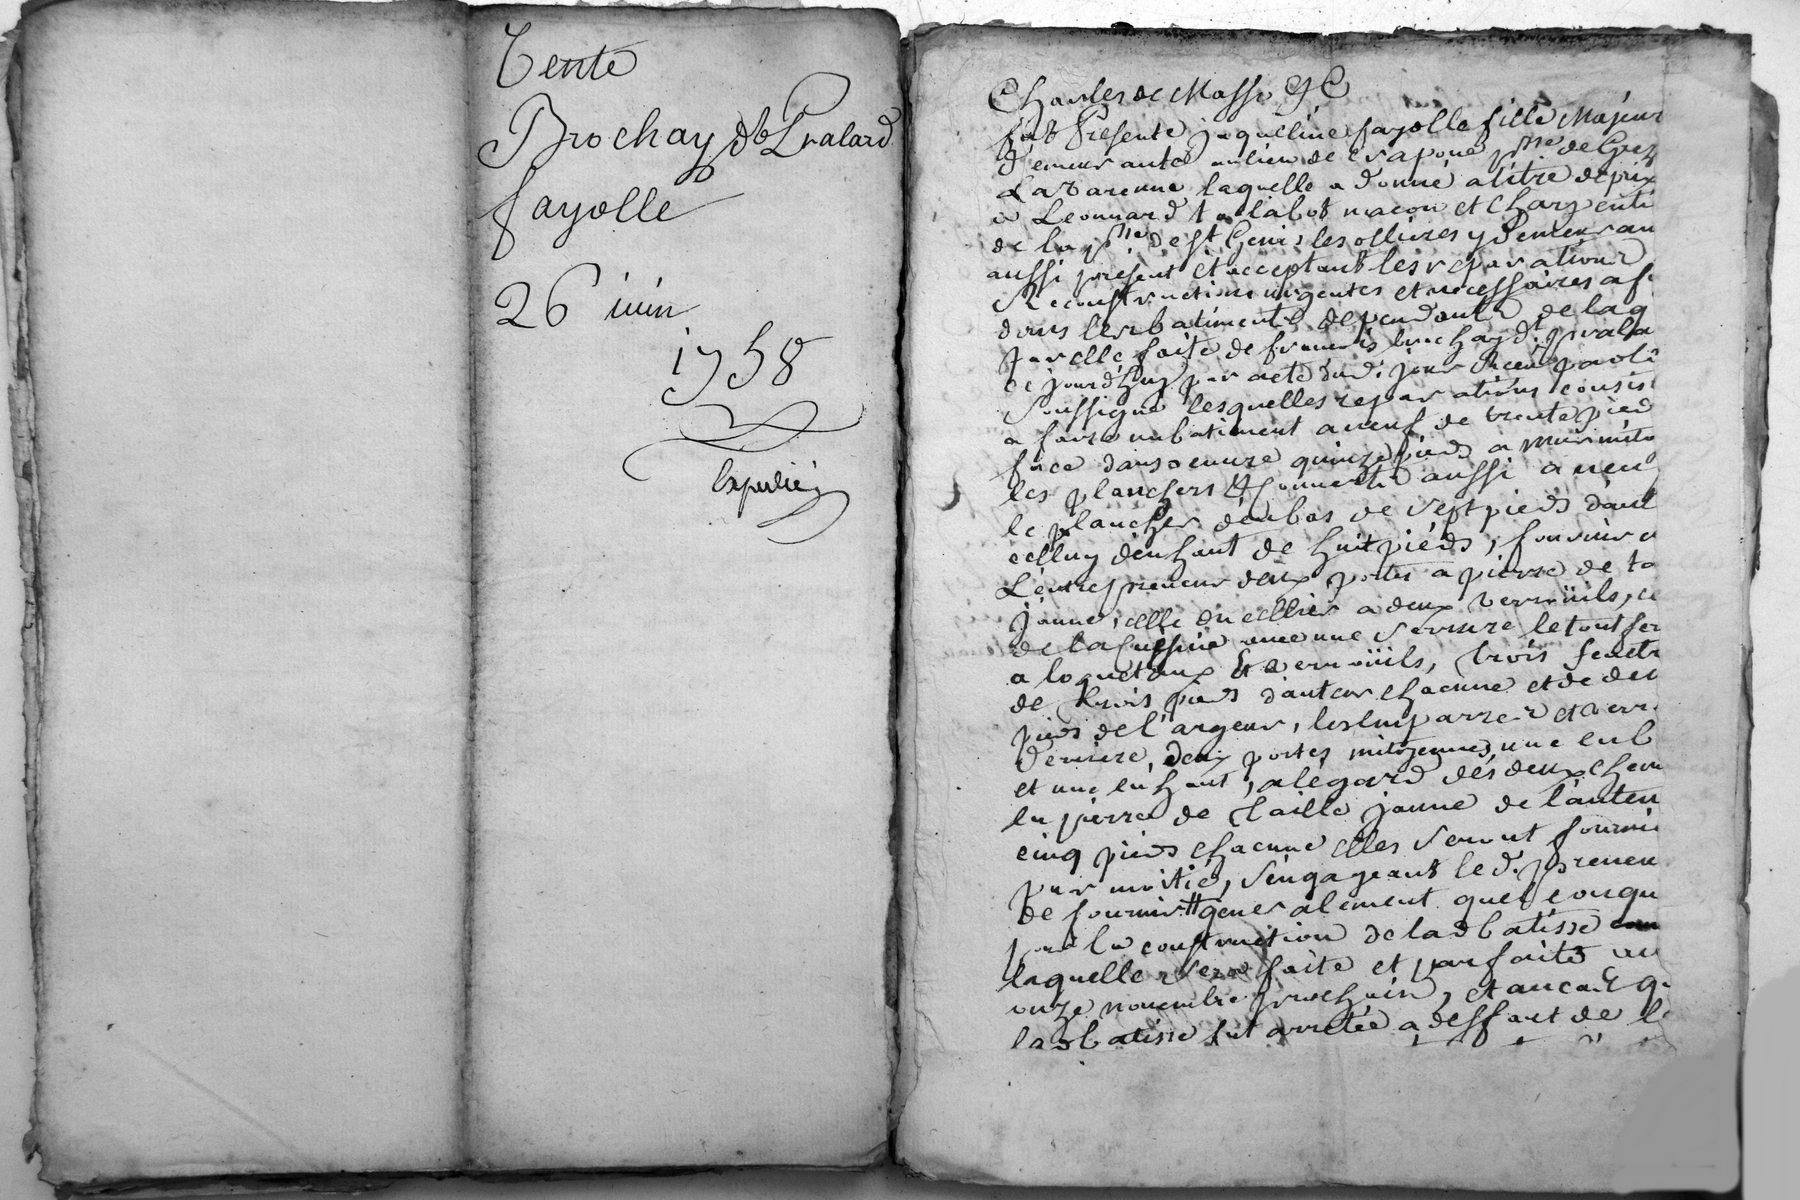 Vente
Brochay dt Pralard
fayolle
26 iuin
1758
Expedié
Charles de Masso &C
fut Presente jaqueline fayolle fille Majeur
demeurante au lieu de Crapone psse de Grez
La Varenne laquelle a donné atitre deprix
a Leonnard macon et Charpenti
de la psse de st Genis les ollieres y Demeuran
aussi present et acceptant les reparations
Reconstructions urgentes et necessaires a f
dans les batiments dependants de laq
par elle faite de francois brochay dt prala
ce jourd'huy par acte dud. jour Receu par
soussigné lesquelles reparations consis
a faire un batiment aneuf de trente pied
face dans oeuvre quinze pieds a mur mito
les planchers & couverts aussi aneuf
le plancher d'enbas de sept pieds d'aut
celluy d'enhaut de huit pieds, fournir
L'entrepreneur deux portes a pierre de ta
jaune, celle du cellier a deux verroüils, ce
de la cuisine avec une serrure le tout fer
a loquetaux & verroüils, trois fenetr
de trois pieds d'auteur chacune et de deu
pieds de l'argeur, les et verr
derriere, deux portes mitoyennes une enb
et une enhaut, alegard des deux chem
en pierre de Taille jaune de l'auteu
cinq pieds chacune elles seront fournie
par moitié, s'engageant led. preneu
de fournir # generalement quelconqu
pour la construction de lad batisse
laquelle sera faite et parfaite au
onze novembre prochain, et aucas q
lad batisse fut arretée a deffaut de l